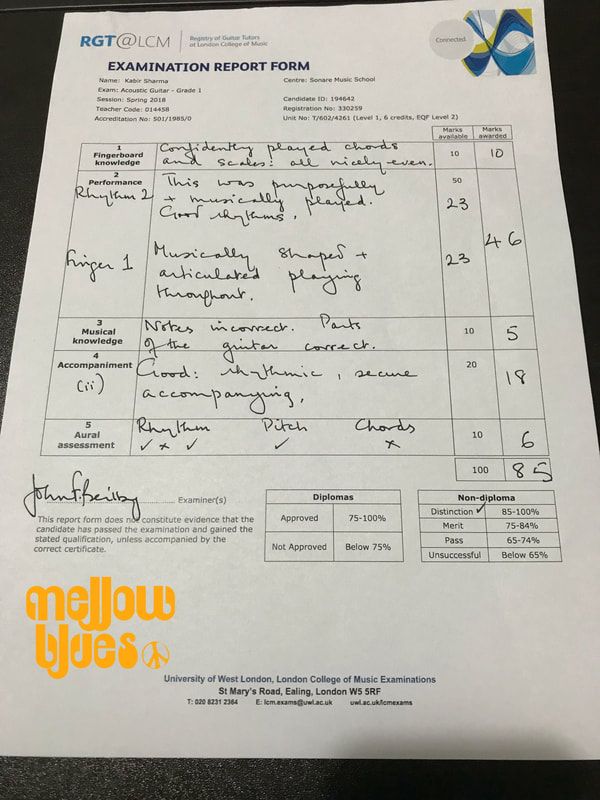 RGT@LCM
Registry of Guitar Tutors
at London College of Music
Connected.
EXAMINATION REPORT FORM
Name: Kabir Sharma
Centre: Sonare Music School
Exam: Acoustic Guitar - Grade 1
Session: Spring 2018
Candidate ID: 194642
Teacher Code: 014458
Registration No: 330259
Accreditation No: 501/1985/0
Unit No: T/602/4261 (Level 1, 6 credits, EQF Level 2)
Marks available
Marks awarded
1
Fingerboard knowledge
Confidently played chords
and scales: all nicely even.
10
10
2
Performance
50
Rhythm 2
This was purposefully
+ musically played.
Good rhythms.
23
46
Finger 1
Musically shaped +
articulated playing
throughout.
23
3
Musical knowledge
Notes incorrect. Parts
of the guitar correct.
10
5
4
Accompaniment
(ii)
Good: rhythmic, secure
accompanying.
20
18
5
Aural assessment
Rhythm Pitch Chords
✓ x ✓ ✓ x
10
6
100
85
John F. Beilby
Examiner(s)
This report form does not constitute evidence that the
candidate has passed the examination and gained the
stated qualification, unless accompanied by the
correct certificate.
Diplomas
Approved 75-100%
Not Approved Below 75%
Non-diploma
Distinction ✓ 85-100%
Merit 75-84%
Pass 65-74%
Unsuccessful Below 65%
mellow
blues
University of West London, London College of Music Examinations
St Mary's Road, Ealing, London W5 5RF
T: 020 8231 2364 E: lcm.exams@uwl.ac.uk uwl.ac.uk/lcmexams